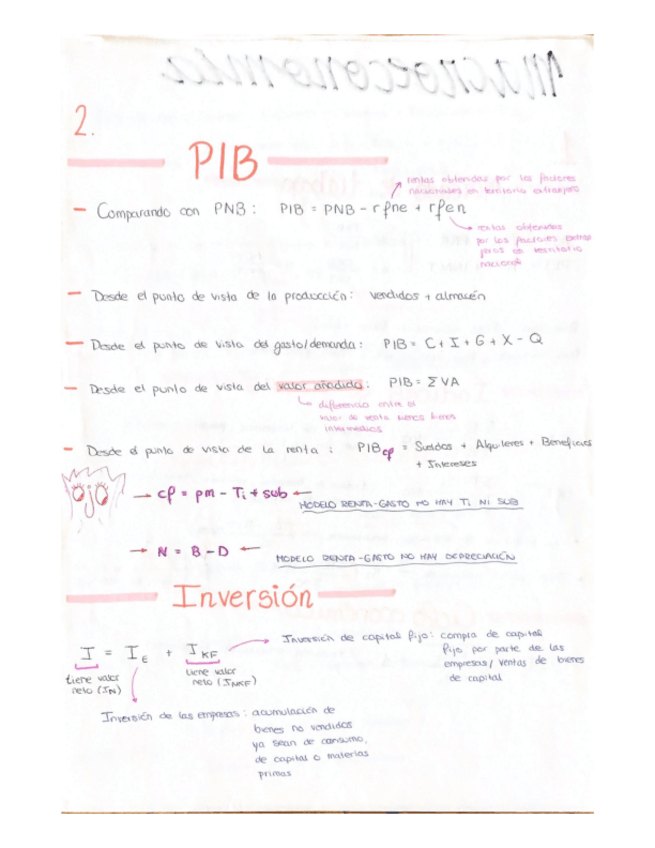 Macroeconomía
2.
PIB
rentas obtenidas por los factores
nacionales en territorio extranjero
- Comparando con PNB: PIB = PNB - rfne + rfen
rentas obtenidas
por los factores extran
jeros en territorio
nacional
- Desde el punto de vista de la producción: vendidos + almacén
- Desde el punto de vista del gasto/demanda: PIB = C + I + G + X - Q
- Desde el punto de vista del valor añadido: PIB = ΣVA
diferencia entre el
valor de venta menos bienes
intermedios
- Desde el punto de vista de la renta: PIBcp = Sueldos + Alquileres + Beneficios
+ Intereses
→ cf = pm - Ti + sub ←
MODELO RENTA-GASTO NO HAY Ti NI SUB
→ N = B - D ←
MODELO RENTA-GASTO NO HAY DEPRECIACIÓN
Inversión
I = IE + IKF
Inversión de capital fijo: compra de capital
fijo por parte de las
empresas/ ventas de bienes
de capital
tiene valor
neto (IN)
tiene valor
neto (INKF)
Inversión de las empresas: acumulación de
bienes no vendidos
ya sean de consumo,
de capital o materias
primas